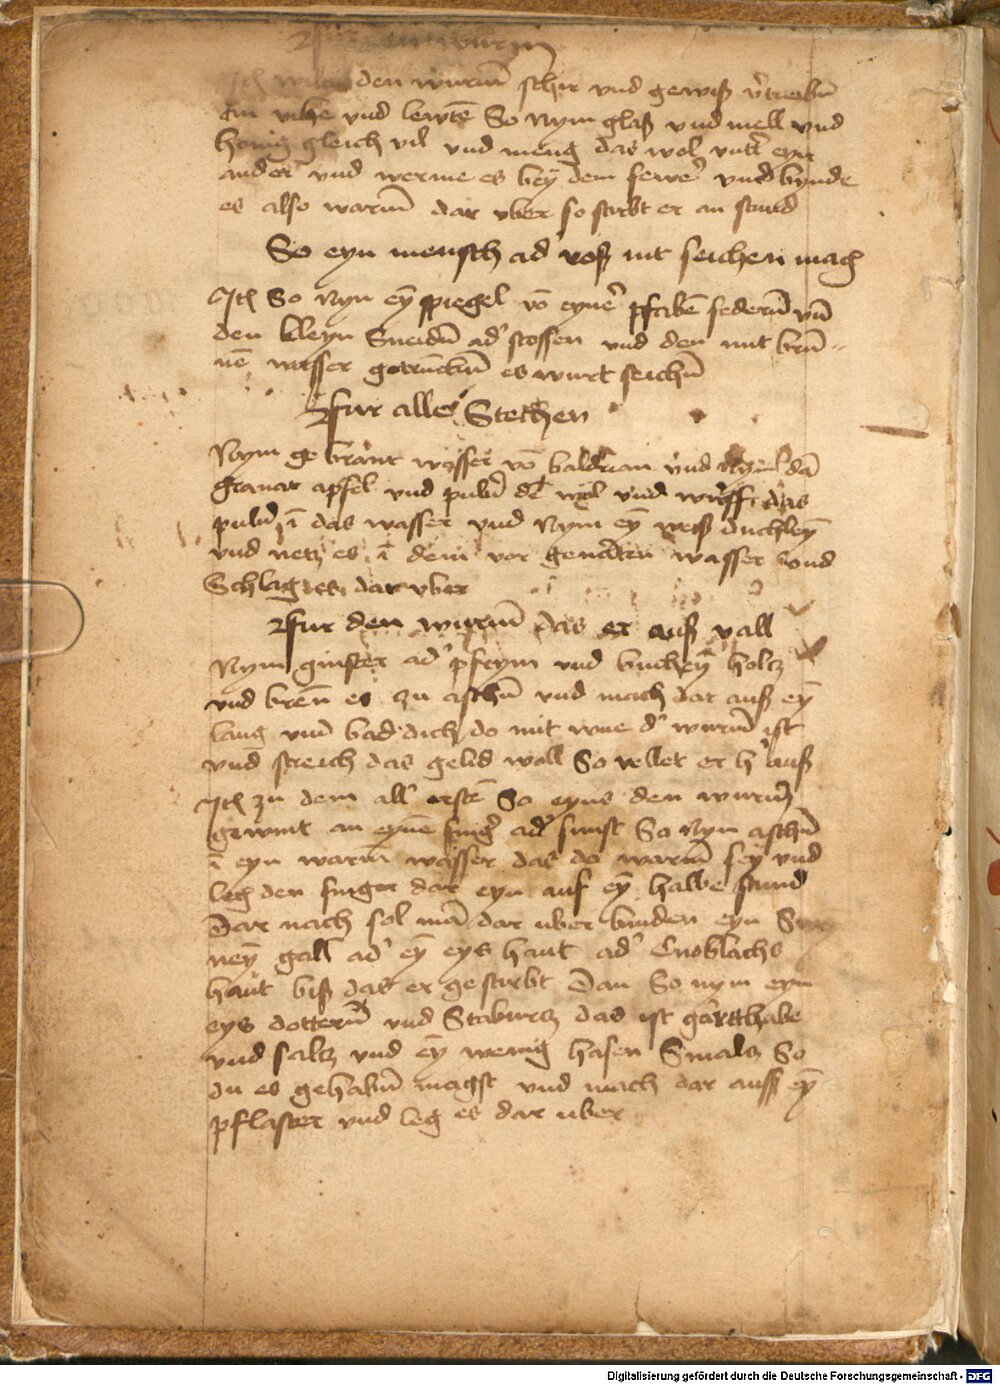 Fur den wurm
Ich den wurm̄ schir vnd gewiß v̓treibn̄
an vihe vnd lewtē So Nym glaß vnd mell vnd
honig gleich vil vnd meng das wol vntr̓ eyn
ander vnd werme es bey dem fewr̓ vnd bynde
es also warm̄ dar vber so stirbt er an stund
So eyn mensch ad̓ roß nit seichen mag
Itē So Nym eȳ spiegel vō eyner̓ pfabē federn̄ vn̄
den kleyn Sneidn̄ ad̓ stossen vnd den mit brū⸗
nē wasser getrūckn̄ es wurt seichn̄
Fur alles Stechen
Nym gebrant wasser vō baldrian vnd Nym dā
granat apfel vnd pulu̓ dē wol vnd wurff das
pulu̓ ī das wasser vnd Nym eȳ weiß duchleȳ
vnd netz es ī dem vor genātten wasser vnd
Schlag es dar vber
Fur den wurm̄ das er auß vall
Nym ginster ad̓ pfrym vnd bucheȳ holtz
vnd brēn es zu aschn̄ vnd mach dar auß eȳ
laug vnd bad dich do mit wue d̓ wurm̄ ist
vnd streich das gelid woll So vellet er h̓ auß
Itē zu dem all̓ erstē So eyns den wurm̄
gewint an eynē fing̓ ad̓ sunst So Nym aschn̄
ī eyn warm̄ wasser das do warm̄ sey vnd
leg den finger dar eyn auf eȳ halbe stund
Dar nach sol mā dar uber binden eyn Swe
neȳ gall ad̓ eȳ eys haut ad̓ Cnoblachs
haut biß das er gestirbt Dan So nym eyn
eys dottern̄ vnd Staburtz das ist garthabe
vnd saltz vnd eȳ wenig hasen Smaltz So
du es gehabn̄ magst vnd mach dar auß eȳ
pflaster vnd leg es dar uber
Digitalisierung gefördert durch die Deutsche Forschungsgemeinschaft - DFG